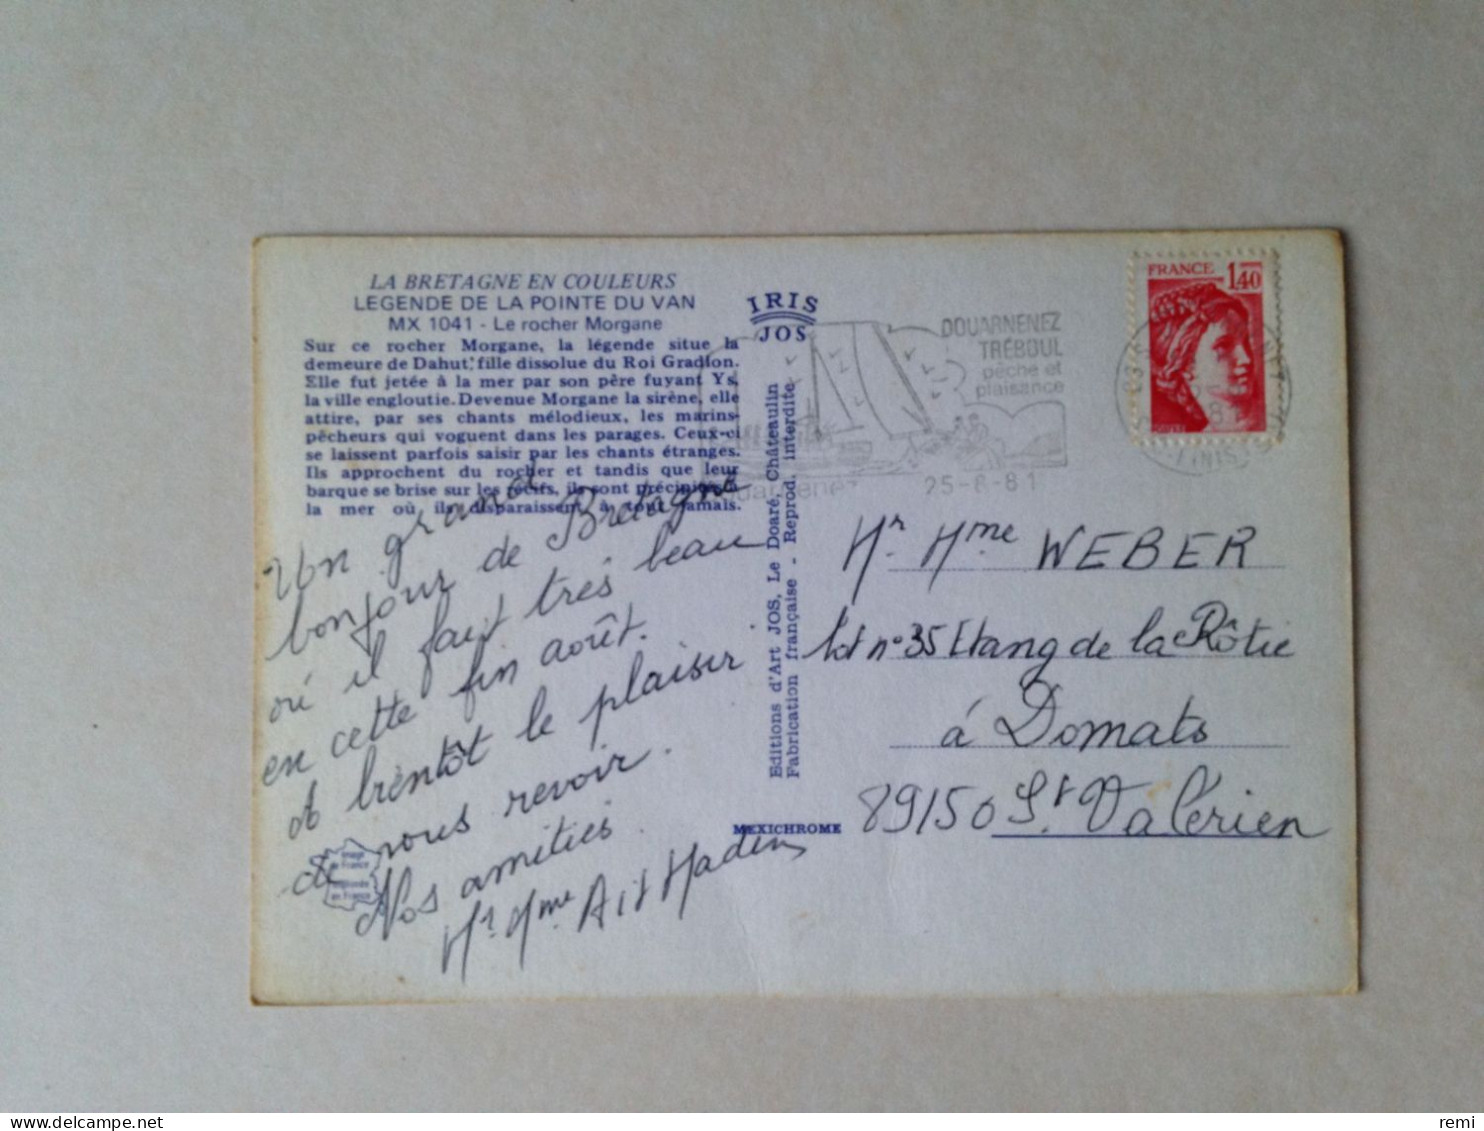 LA BRETAGNE EN COULEURS
LEGENDE DE LA POINTE DU VAN
MX 1041 - Le rocher Morgane
Sur ce rocher Morgane, la légende situe la
demeure de Dahut, fille dissolue du Roi Gradlon.
Elle fut jetée à la mer par son père fuyant Ys,
la ville engloutie. Devenue Morgane la sirène, elle
attire, par ses chants mélodieux, les marins-
pêcheurs qui voguent dans les parages. Ceux-ci
se laissent parfois saisir par les chants étranges.
Ils approchent du rocher et tandis que leur
barque se brise sur les récifs, ils sont précipités à
la mer où ils disparaissent à tout jamais.
Un grand
bonjour de Bretagne
où il fait très beau
en cette fin août.
A bientôt le plaisir
de nous revoir.
Nos amitiés
Mr Mme Ait Hadin
Image
de France
imprimée
en France
IRIS
JOS
Editions d'Art JOS, Le Doaré, Châteaulin
Fabrication française - Reprod. interdite
MEXICHROME
DOUARNENEZ
TRÉBOUL
pêche et
plaisance
Douarnenez
25-8-81
FRANCE 1,40
FINIST
Mr Mme WEBER
lot n°35 Etang de la Rôtie
à Domats
89150 St Valérien
remi